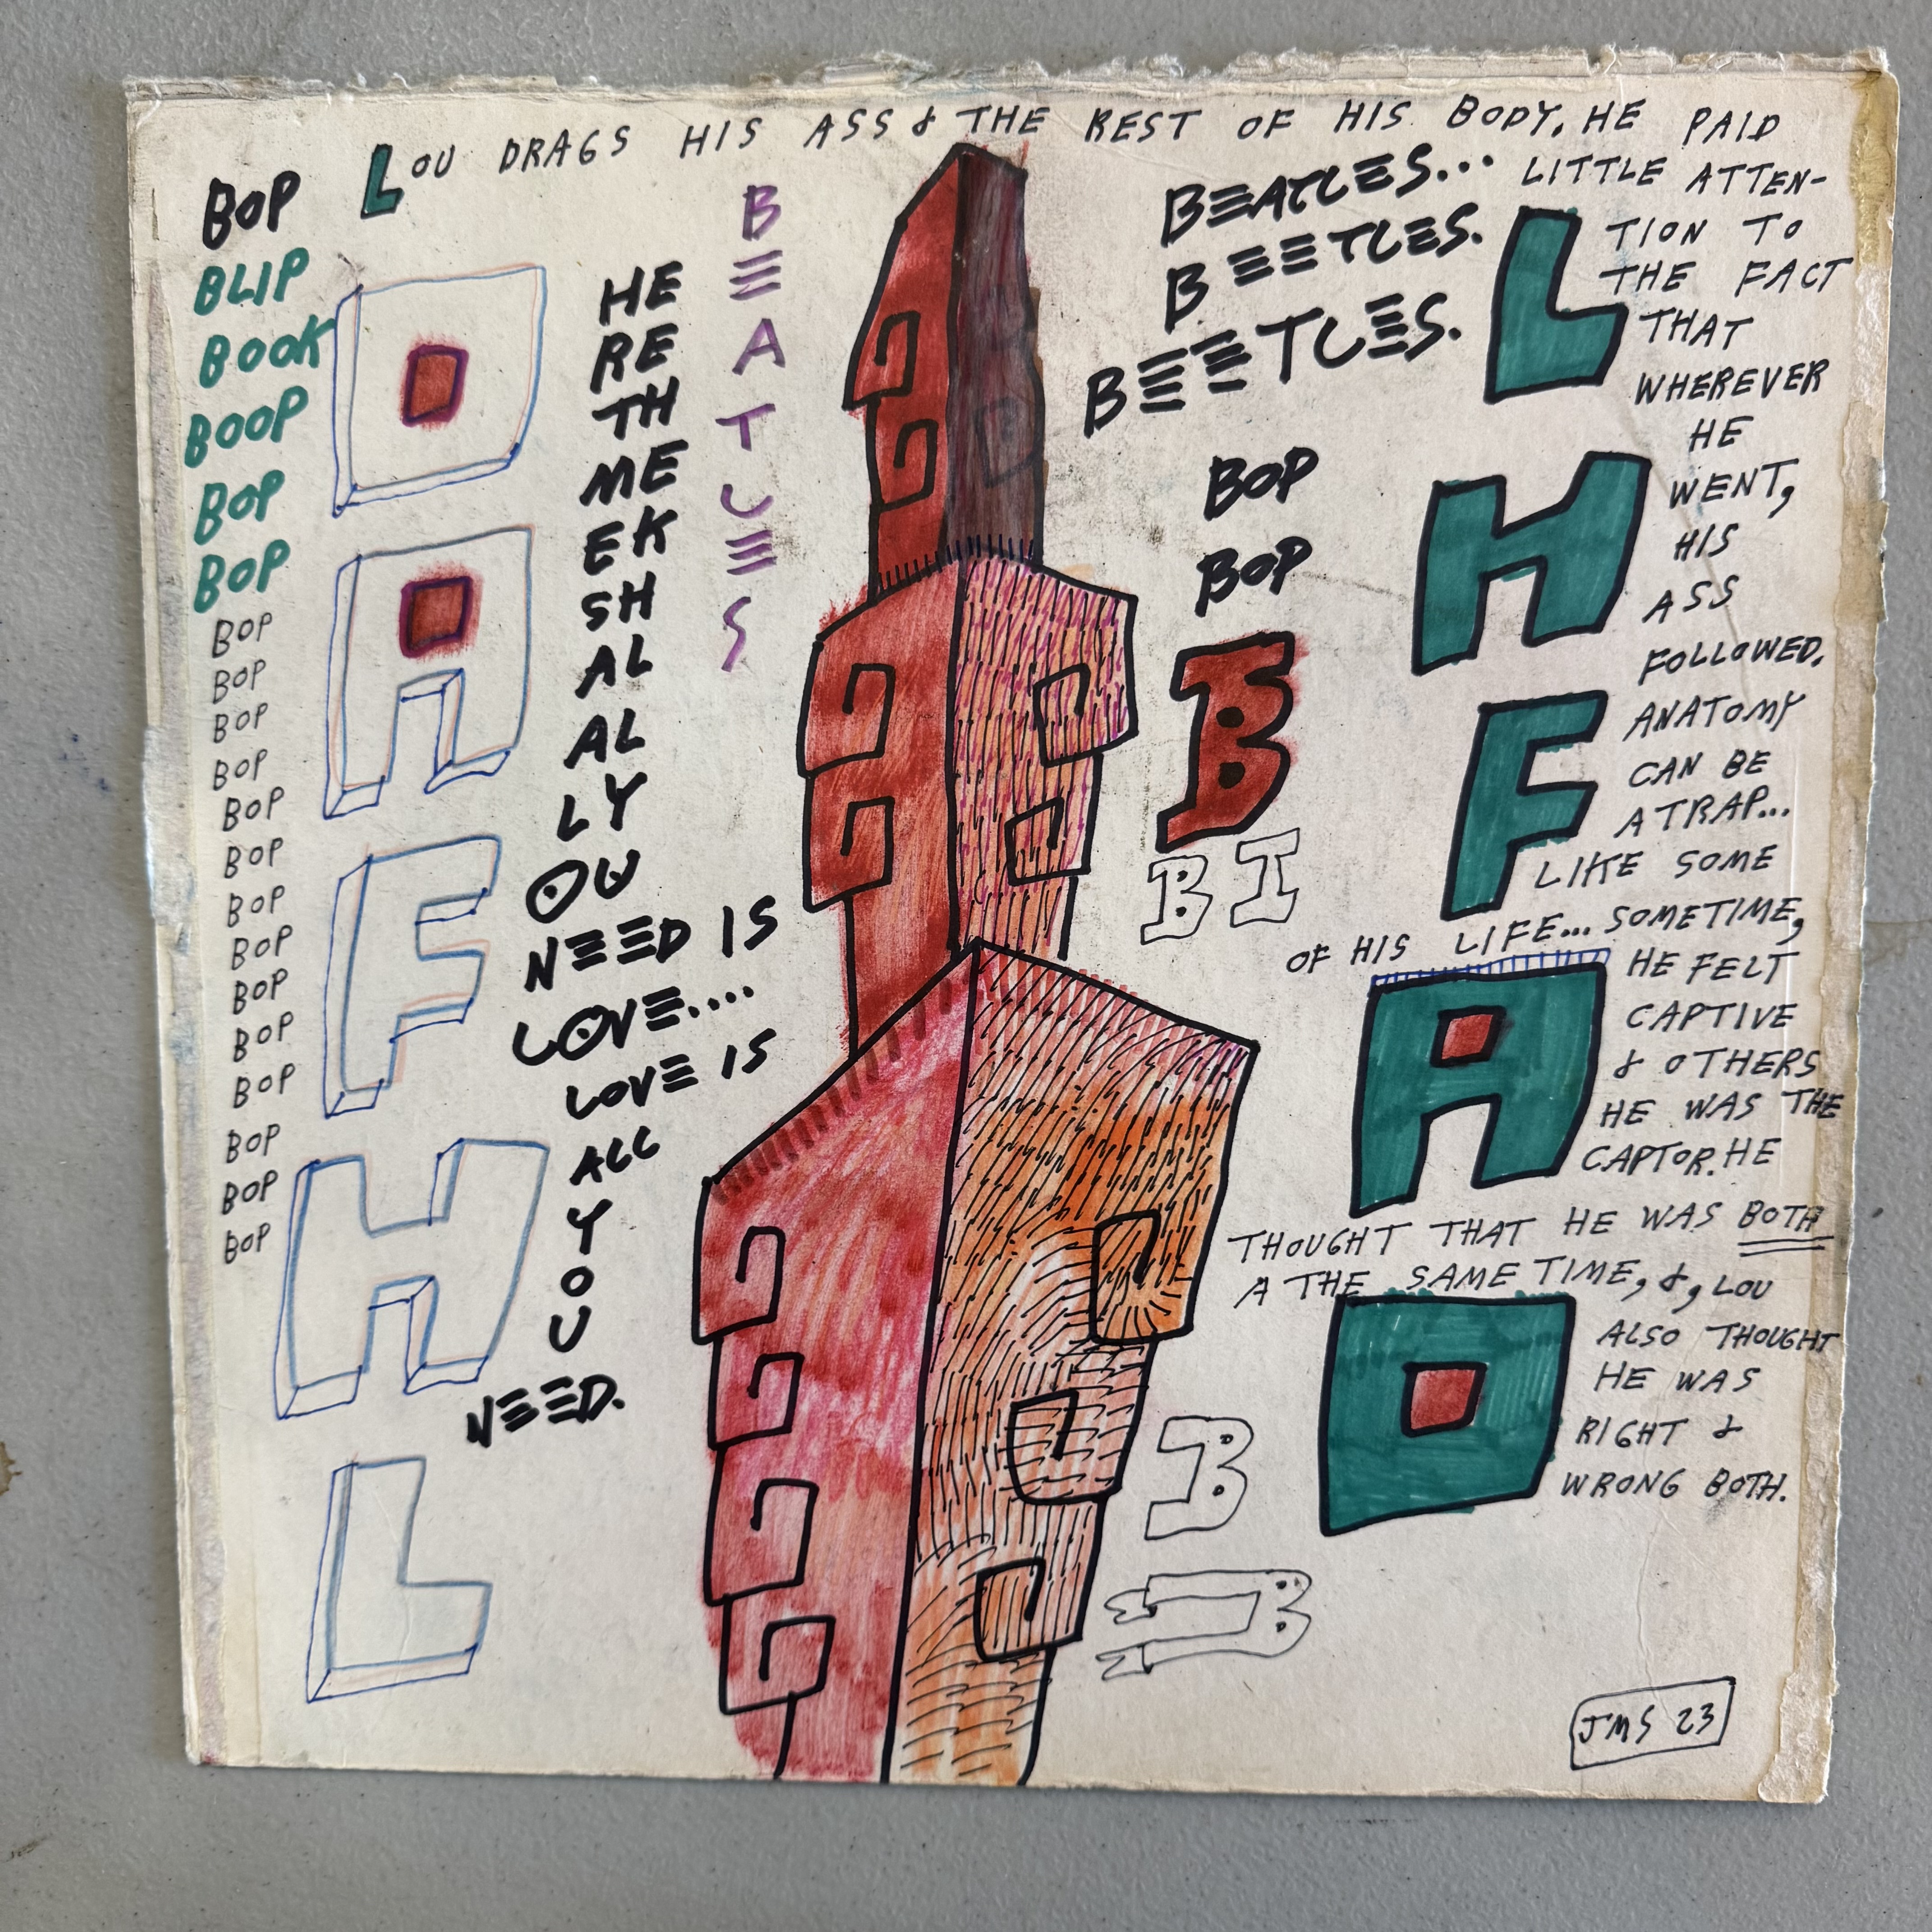 LOU DRAGS HIS ASS & THE REST OF HIS BODY, HE PAID
LITTLE ATTEN-
TION TO
THE FACT
THAT
WHEREVER
HE
WENT,
HIS
ASS
FOLLOWED.
ANATOMY
CAN BE
A TRAP...
LIKE SOME
OF HIS LIFE... SOMETIME,
HE FELT
CAPTIVE
& OTHERS
HE WAS THE
CAPTOR. HE
THOUGHT THAT HE WAS BOTH
A THE SAME TIME, &, LOU
ALSO THOUGHT
HE WAS
RIGHT &
WRONG BOTH.
BOP
BLIP
BOOK
BOOP
BOP
BOP
BOP
BOP
BOP
BOP
BOP
BOP
BOP
BOP
BOP
BOP
BOP
BOP
BOP
BOP
O
A
F
H
L
HE
RE
TH
ME
EK
SH
AL
AL
LY
OU
NEED IS
LOVE....
LOVE IS
ALL
Y
O
U
NEED.
B
E
A
T
L
E
S
BEATLES...
BEETLES.
BEETLES.
BOP
BOP
B
BI
B
B
L
H
F
A
O
JMS 23